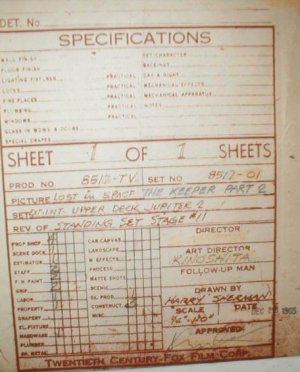 DET. No.
SPECIFICATIONS
WALL FINISH
SET CHARACTER
FLOOR FINISH
BACKINGS
LIGHTING FIXTURES PRACTICAL DAY & NIGHT
LOCKS PRACTICAL MECHANICAL EFFECTS
FIRE PLACES PRACTICAL MECHANICAL APPARATUS
PLUMBING PRACTICAL NOTES
WINDOWS PRACTICAL
GLASS IN WDWS & DOORS
SPECIAL DRAPES
SHEET 1 OF 1 SHEETS
PROD. NO 8512-TV SET NO. 8512-01
PICTURE LOST IN SPACE THE KEEPER PART 2
SET INT. UPPER DECK JUPITER 2
REV OF STANDING SET STAGE #11
PROP SHOP CAR CANVAS
DIRECTOR
SCENE DOCK LANDSCAPE
ESTIMATOR M EFFECTS
ART DIRECTOR
KINOSHITA
STAFF PROCESS
FOLLOW-UP MAN
F. H. PAINT MATTE SHOTS
GRIP SCENIC
LABOR SU. PROD.
DRAWN BY
PROPERTY CONSTRUCT.
HARRY SHERMAN
DRAPERY MINI.
SCALE DATE
EL. FIXTURE
DEC 1965
HARDWARE
APPROVED
PLUMBER
SH. METAL
TWENTIETH CENTURY-FOX FILM CORP.